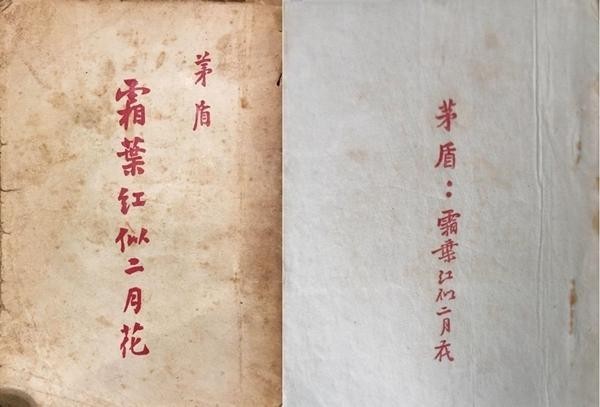 茅盾
霜葉紅似二月花
茅盾：霜葉红似二月花